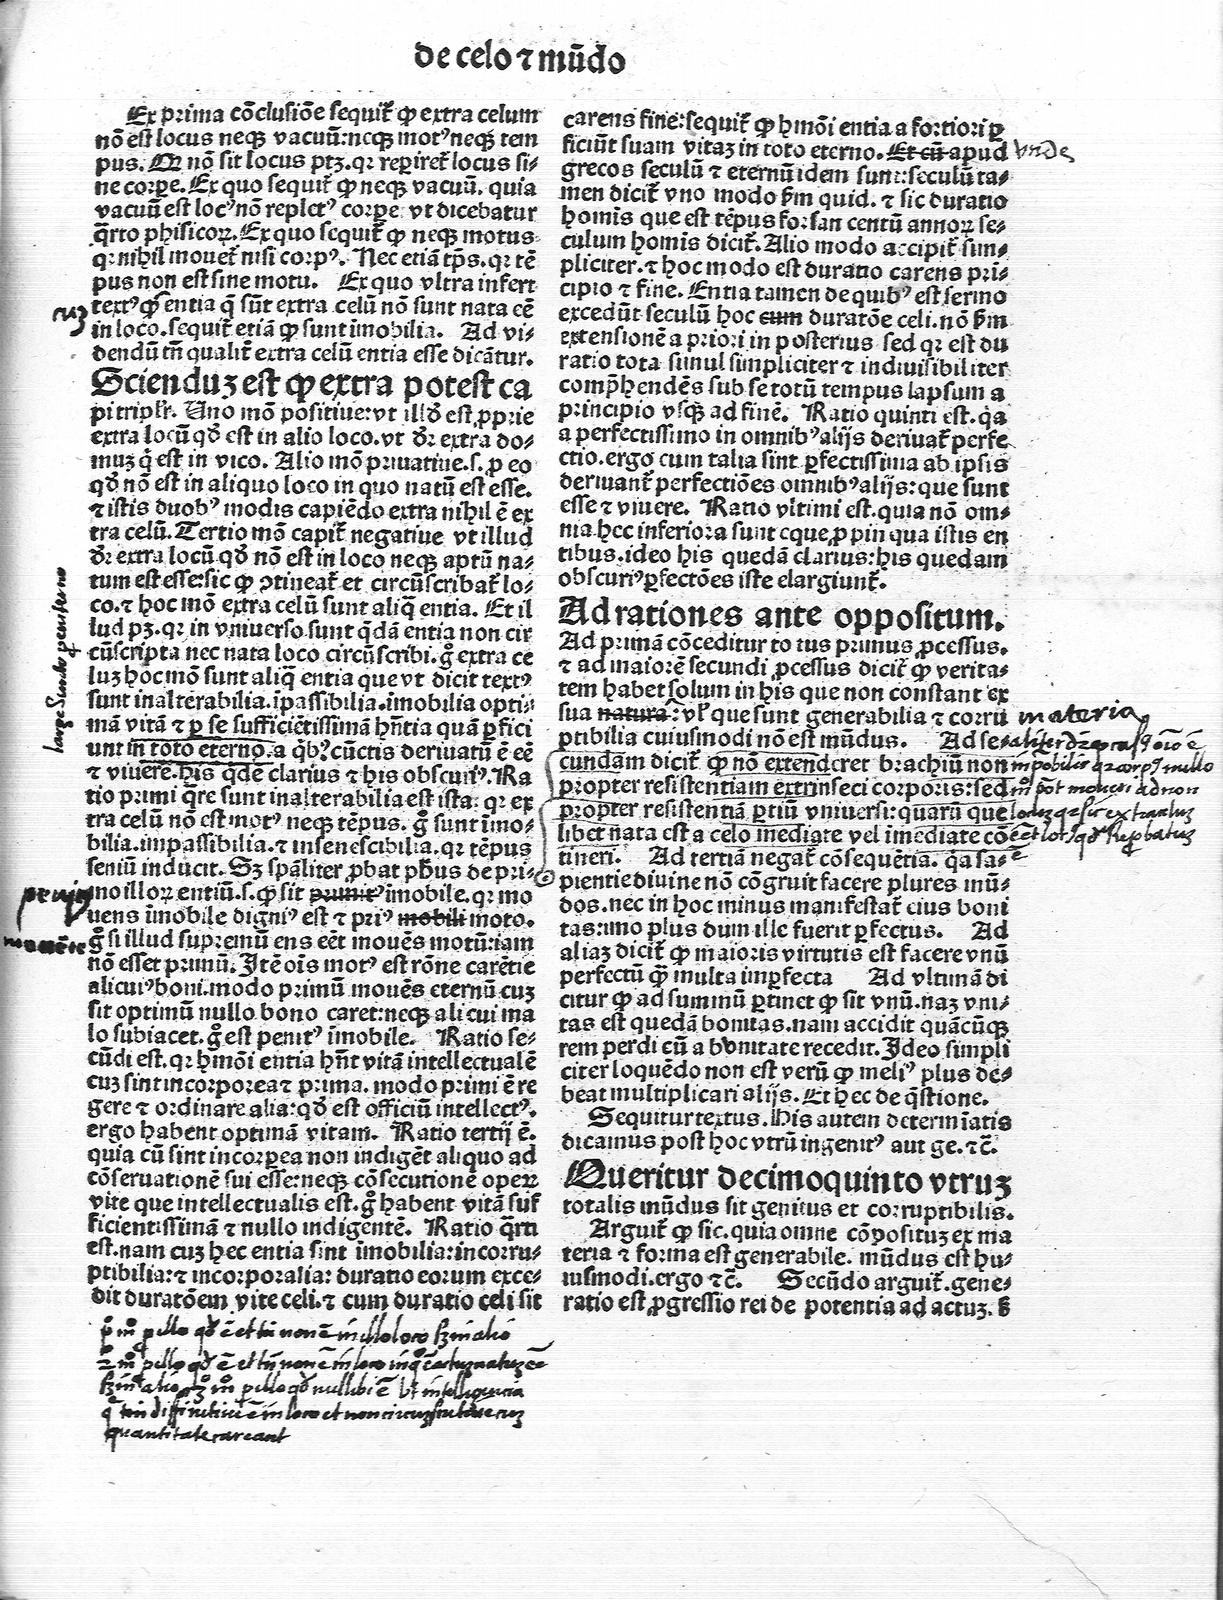 de celo ⁊ mūdo
Ex prima cōclusiōe sequit᷑ ꝙ extra celum
nō est locus neqꝫ vacuū: neqꝫ motꝰ neqꝫ tem
pus. Ꝙ nō sit locus ptꝫ. qꝛ reṗiret᷑ locus si⸗
ne corꝑe. Ex quo sequit᷑ ꝙ neqꝫ vacuū. quia
vacuū est locꝰ nō repletꝰ corꝑe. vt dicebatur
q̄rto phisicoꝝ. Ex quo sequit᷑ ꝙ neqꝫ motus
qꝛ nihil mouet᷑ nisi corpꝰ. Nec etiā tp̄s. qꝛ tē
pus non est sine motu. Ex quo vltra infert
textꝰ ꝙ entia q̄ sūt extra celū nō sunt nata eē
in loco. sequit᷑ etiā ꝙ sunt īmobilia. Ad vi⸗
dendū tn̄ qualit᷑ extra celū entia esse dicātur.
Sciendūꝫ est ꝙ extra potest ca
pi triplr̄. Uno mō positiue: vt illd̄ est ꝓprie
extra locū qd̄ est in alio loco. vt dr̄ extra do⸗
muꝫ q̇ est in vico. Alio mō priuatiue. s. ꝓ eo
qd̄ nō est in aliquo loco in quo natū est esse.
⁊ istis duobꝰ modis capiēdo extra nihil ē ex
tra celū. Tertio mō capit᷑ negatiue vt illud
dr̄ extra locū qd̄ nō est in loco neqꝫ aptū na⸗
tum est esse: sic ꝙ ꝯtineat᷑ et circūscribat᷑ lo⸗
co. ⁊ hoc mō extra celū sunt aliq̄ entia. Et il
lud pꝫ. qꝛ in vniuerso sunt q̄dā entia non cir
cūscripta nec nata loco circūscribi. gͦ extra ce
luꝫ hoc mō sunt aliq̄ entia que vt dicit textꝰ
sunt inalterabilia. īpassibilia. īmobilia opti⸗
mā vitā ⁊ ꝑ se sufficiētissimā hn̄tia quā ꝑfici
unt in toto eterno. a q̇bꝰ cūctis deriuatū ē eē
⁊ viuere. his q̇dē clarius ⁊ his obscuriꝰ. Ra
tio primi q̄re sunt inalterabilia est ista: qꝛ ex
tra celū nō est motꝰ neqꝫ tēpus. gͦ sunt īmo⸗
bilia. impassibilia. ⁊ insenescibilia. qꝛ tēpus
seniū inducit. Sꝫ sp̄aliter ꝓbat ph̄us de pri⸗
mo illoꝝ entiū. s. ꝙ sit īmobile. qꝛ mo
uens īmobile digniꝰ est ⁊ priꝰ mobili moto.
gͦ si illud supremū ens eēt mouēs motū: iam
nō esset primū. Itē oīs motꝰ est rōne carētie
alicuiꝰ boni. modo primū mouēs eternū cuꝫ
sit optimū nullo bono caret: neqꝫ alicui ma
lo subiacet. gͦ est penitꝰ īmobile. Ratio se⸗
cūdi est. qꝛ hmōi entia hn̄t vitā intellectualē
cuꝫ sint incorporea ⁊ prima. modo primi ē re
gere ⁊ ordinare alia: qd̄ est officiū intellectꝰ.
ergo habent optimā vitam. Ratio tertij ē.
quia cū sint incorporea non indigēt aliquo ad
cōseruationē sui esse: neqꝫ cōsecutionē operꝝ
vite que intellectualis est. gͦ habent vitā suf
ficientissimā ⁊ nullo indigentē. Ratio q̄rti
est. nam cuꝫ hec entia sint īmobilia: incorru⸗
ptibilia: ⁊ incorporalia: duratio eorum exce⸗
dit duratōem vite celi. ⁊ cum duratio celi sit
carens fine: sequit᷑ ꝙ hmōi entia a fortiori ꝑ
ficiūt suam vitaꝫ in toto eterno. Et cū apud
grecos seculū ⁊ eternū idem sunt: seculū ta⸗
men dicit᷑ vno modo ẜm quid. ⁊ sic duratio
homīs que est tēpus forsan centū annoꝝ se⸗
culum homīs dicit᷑. Alio modo accipit᷑ sim⸗
pliciter. ⁊ hoc modo est duratio carens pri⸗
cipio ⁊ fine. Entia tamen de quibꝰ est sermo
excedūt seculū hoc cum duratōe celi. nō ẜm
extensionē a priori in posterius sed qꝛ est du
ratio tota simul simpliciter ⁊ indiuisibiliter
comp̄hendēs sub se totū tempus lapsum a
principio vsqꝫ ad finē. Ratio quinti est. q̇a
a perfectissimo in omnibꝰ alijs deriuat᷑ perfe
ctio. ergo cum talia sint ꝑfectissima ab ipsis
deriuant᷑ perfectiōes omnibꝰ alijs: que sunt
esse ⁊ viuere. Ratio vltimi est. quia nō om⸗
nia hec inferiora sunt eque ꝓpinqua istis en
tibus. ideo his quedā clarius: his quedam
obscuriꝰ ꝑfectōes iste elargiunt᷑.
Ad rationes ante oppositum.
Ad primā cōceditur totus primus ꝓcessus.
⁊ ad maiorē secundi ꝓcessus dicit᷑ ꝙ verita⸗
tem habet solum in his que non constant ex
sua natura: vl̄ que sunt generabilia ⁊ corru
ptibilia cuiusmodi nō est mūdus. Ad se⸗
cundam dicit᷑ ꝙ nō extenderet brachiū non
propter resistentiam extrinseci corporis: sed
propter resistentiā ꝑtiū vniuersi: quarū que
libet nata est a celo mediate vel īmediate cō
tineri. Ad tertiā negat᷑ cōsequētia. q̇a sa⸗
pientie diuine nō cōgruit facere plures mū⸗
dos. nec in hoc minus manifestat᷑ eius boni
tas: īmo plus dum ille fuerit ꝑfectus. Ad
aliaꝫ dicit᷑ ꝙ maioris virtutis est facere vnū
perfectū ꝙ̄ multa imꝑfecta Ad vltimā di
citur ꝙ ad summū ꝑtinet ꝙ sit vnū. naꝫ vni⸗
tas est quedā bonitas. nam accidit quācūqꝫ
rem perdi cū a bonitate recedit. Ideo simpli
citer loquēdo non est verū ꝙ meliꝰ plus de⸗
beat multiplicari alijs. Et hec de q̄stione.
Sequitur textus. His autem determīatis
dicamus post hoc vtrū ingenitꝰ aut ge. ⁊ c̄.
Queritur decimoquinto vtruꝫ
totalis mūdus sit genitus et corruptibilis.
Arguit᷑ ꝙ sic. quia omne cōpositūꝫ ex ma
teria ⁊ forma est generabile. mūdus est hu⸗
iusmodi. ergo ⁊ c̄. Secūdo arguit᷑. gene⸗
ratio est ꝓgressio rei de potentia ad actuꝫ. ẜ
cuꝫ
vnde
materia
quantitate careant